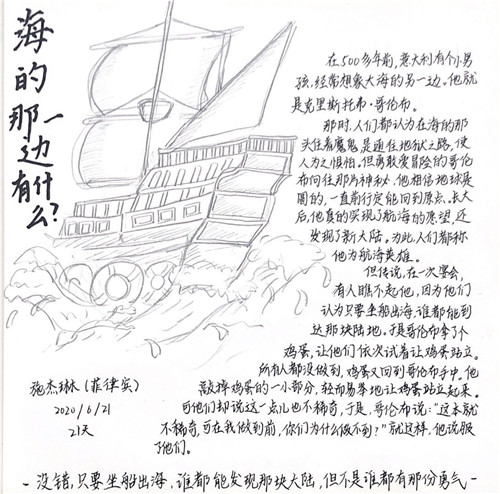 海的那一边有什么？
在500多年前，意大利有个小男
孩，经常想象大海的另一边。他就
是克里斯托弗·哥伦布。
那时，人们都认为在海的那
头住着魔鬼，是通往地狱之路，使
人为之惧怕。但勇敢爱冒险的哥伦
布向往那片神秘，他相信地球是
圆的，一直前行定能回到原点。长大
后，他真的实现了航海的愿望，还
发现了新大陆。为此，人们都称
他为航海英雄。
但传说，在一次宴会，
有人瞧不起他，因为他们
认为只要坐船出海，谁都能到
达那块陆地。于是哥伦布拿了个
鸡蛋，让他们依次试着让鸡蛋站立。
所有人都没做到，鸡蛋又回到哥伦布手中。他
敲掉鸡蛋的一小部分，轻而易举地让鸡蛋站立起来。
可他们却说这一点儿也不稀奇，于是，哥伦布说："这本就
不稀奇，可在我做到前，你们为什么做不到？"就这样，他说服
了他们。
施杰琳（菲律宾）
2020/6/21
21天
-没错，只要坐船出海，谁都能发现那块大陆，但不是谁都有那份勇气-